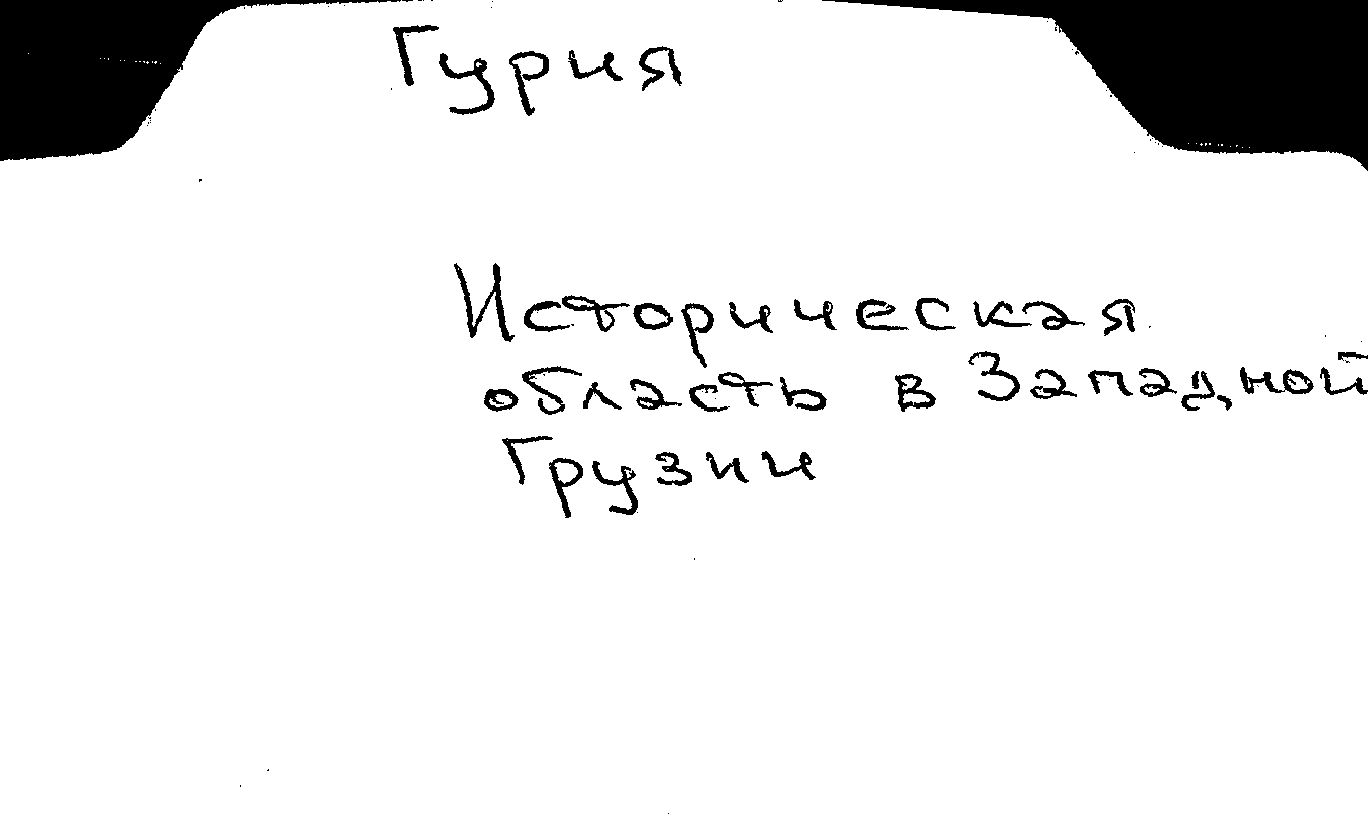 Гурия
Историческая
область в Западной
Грузии